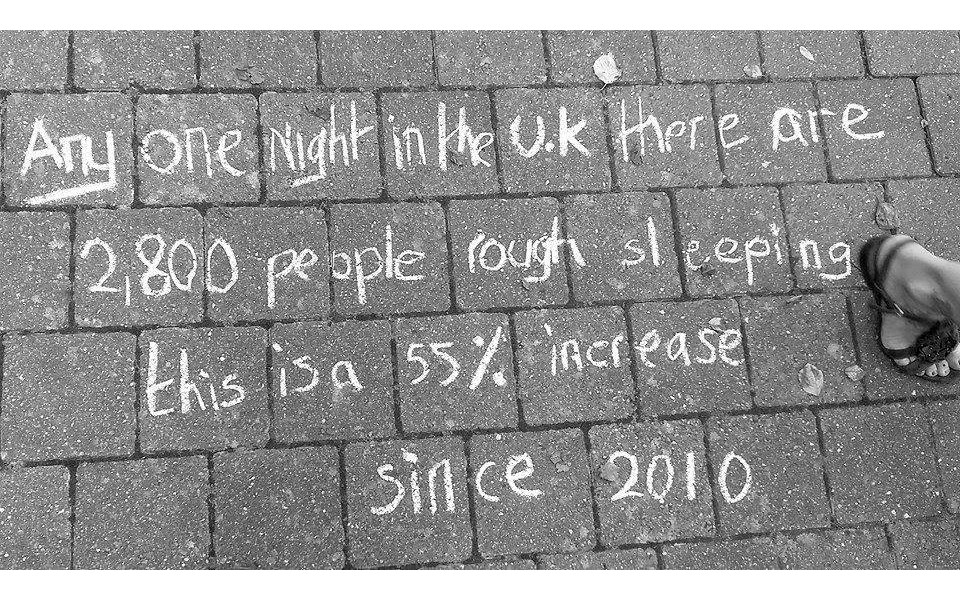 Any one Night in the U.K there are
2,800 people rough sleeping
this is a 55% increase
since 2010